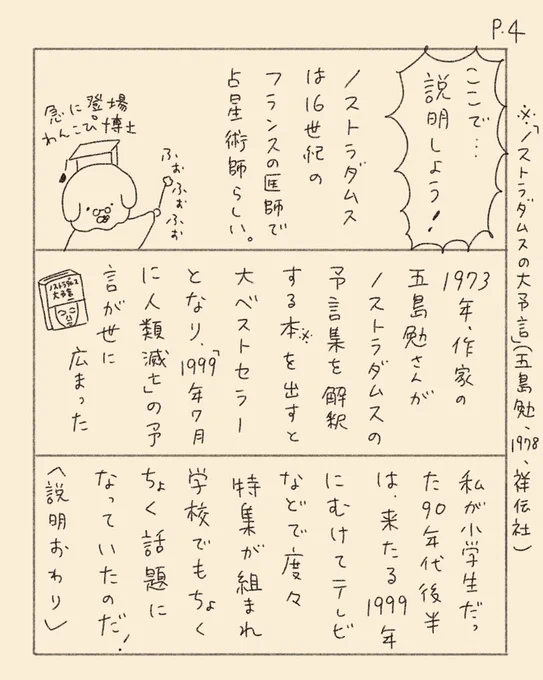 P.4
ここで…
説明しよう!
ノストラダムス
は16世紀の
フランスの医師で
占星術師らしい。
急に登場
わんこぴ博士
ふぉ
ふぉ
ふぉ
1973
年、作家の
五島勉さんが
ノストラダムスの
予言集を解釈
する本※を出すと
大ベストセラー
となり、「1999年7月
に人類滅亡」の予
言が世に
広まった
ノストラダムス
大予言
私が小学生だっ
た90年代後半
は、来たる1999年
にむけてテレビ
などで度々
特集が組まれ
学校でもちょく
ちょく話題に
なっていたのだ!
(説明おわり)
※「ノストラダムスの大予言」(五島勉、1978、祥伝社)